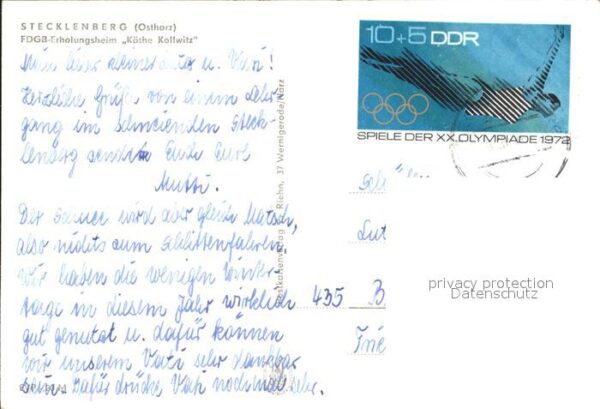 STECKLENBERG (Ostharz)
FDGB-Erholungsheim „Käthe Kollwitz"
10+5 DDR
SPIELE DER XX. OLYMPIADE 1972
Herzliche Grüße von einem Lehr
gang im schneienden Steck-
lenberg sendet Euch Eure
Mutti.
Der Schnee wird aber gleich Matsch,
also nichts zum Schlittenfahren,
wir haben die wenigen Winter
tage in diesem Jahr wirklich
gut genutzt u. dafür können
wir unserem Vati sehr dankbar
sein. Dafür drücke Vati nochmal sehr.
Riehn, 37 Wernigerode/Harz
Lut
435 B
privacy protection
Datenschutz